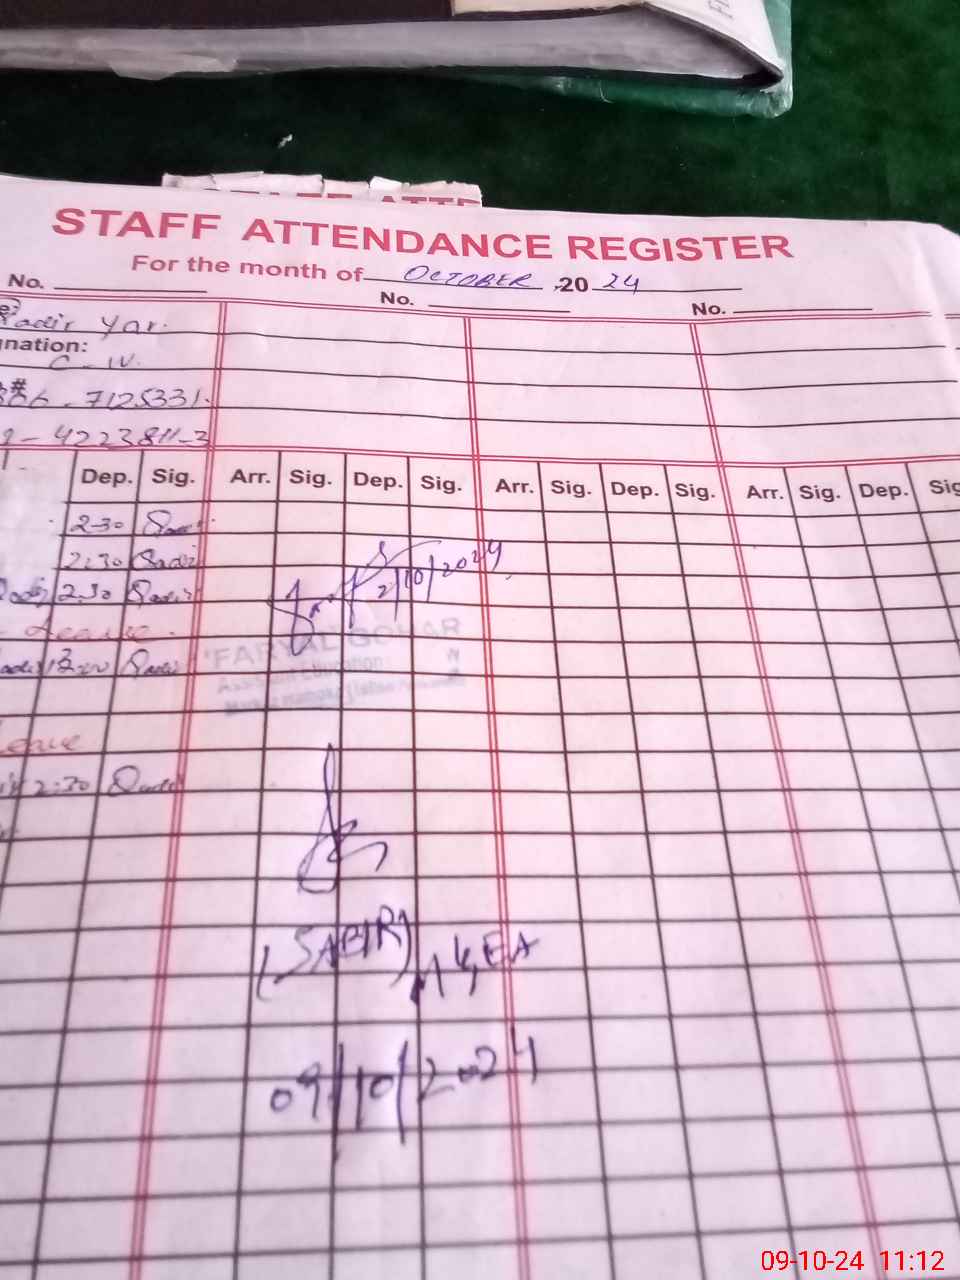 STAFF ATTENDANCE REGISTER
For the month of OCTOBER 2024
No. No. No.
Qadir Yar.
nation:
C - IV.
#
36 - 7125331.
9 - 4223811-3
Dep. Sig. Arr. Sig. Dep. Sig. Arr. Sig. Dep. Sig. Arr. Sig. Dep. Sig
2-30
2:30 Qadir
2.30 Qadir
2/10/2024
Leave.
FARYAL GOHAR
Assistant Education
Leave
2:30 Qadir
(SABIR)
09/10/2024
09-10-24 11:12